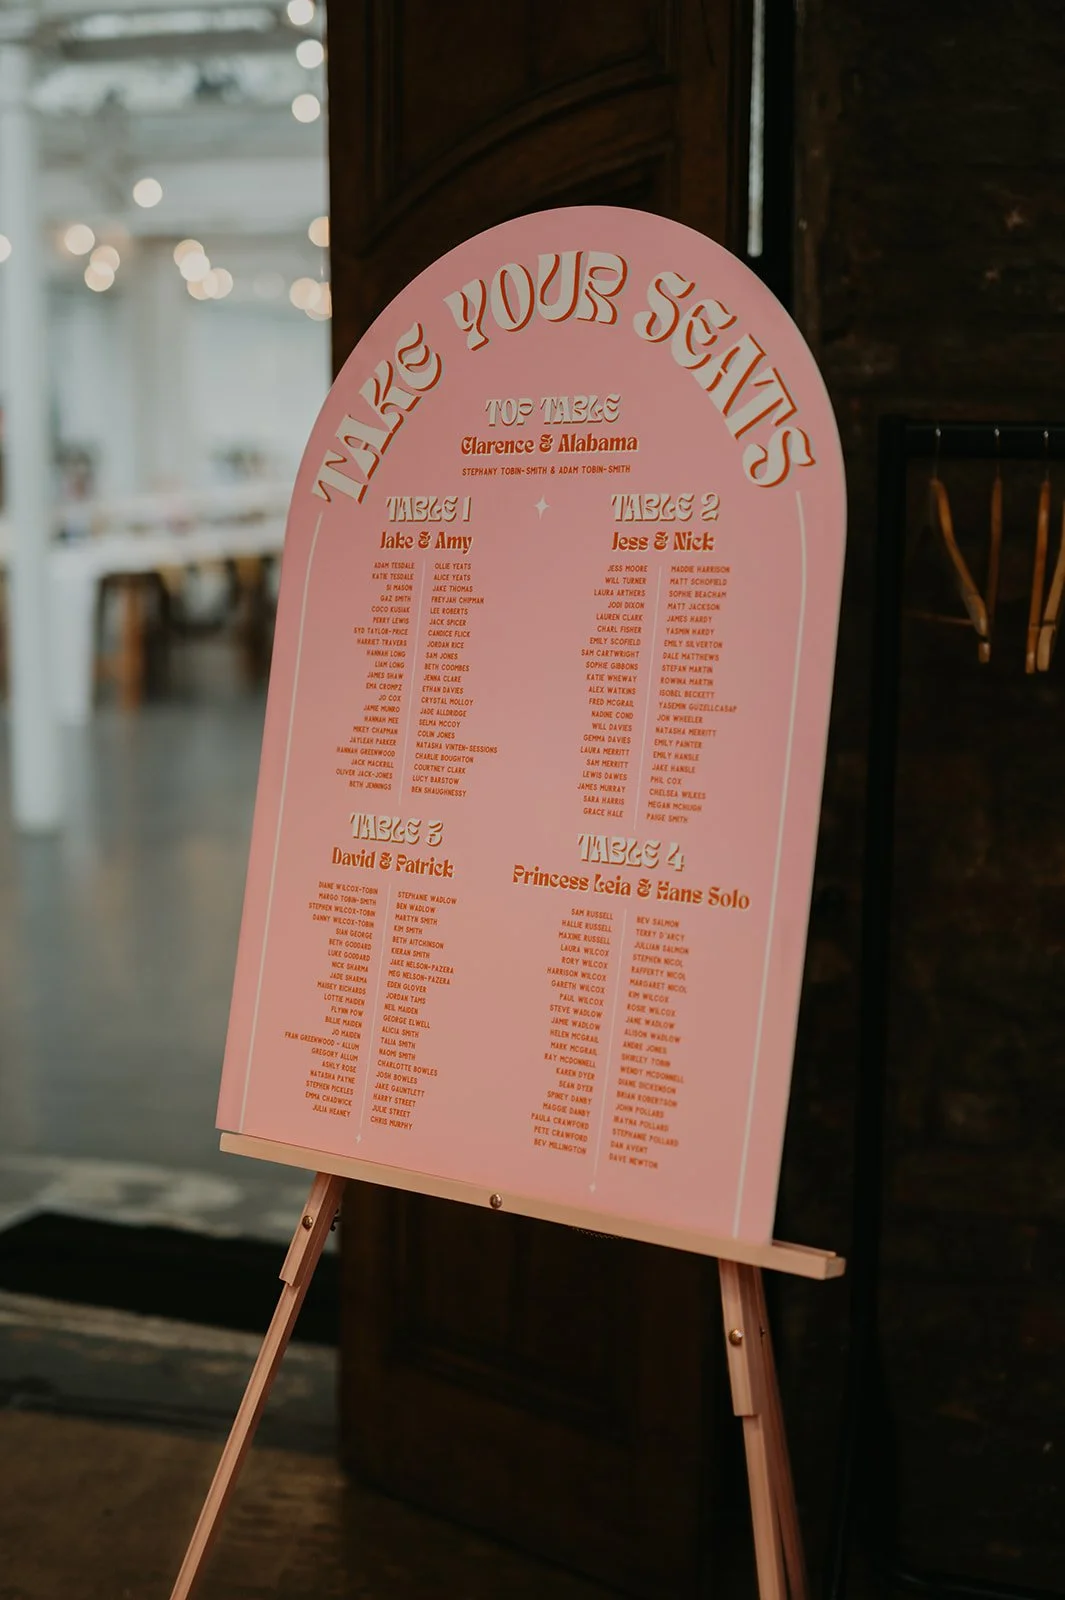 TAKE YOUR SEATS
TOP TABLE
Clarence & Alabama
STEPHANY TOBIN-SMITH & ADAM TOBIN-SMITH
TABLE 1
Jake & Amy
ADAM TESDALE
KATIE TESDALE
SI MASON
GAZ SMITH
COCO KUSIAK
PERRY LEWIS
SYD TAYLOR-PRICE
HARRIET TRAVERS
HANNAH LONG
LIAM LONG
JAMES SHAW
EMA CROMPZ
JO COX
JAMIE MUNRO
HANNAH MEE
MIKEY CHAPMAN
JAYLEAH PARKER
HANNAH GREENWOOD
JACK MACKRILL
OLIVER JACK-JONES
BETH JENNINGS
OLLIE YEATS
ALICE YEATS
JAKE THOMAS
FREYJAH CHIPMAN
LEE ROBERTS
JACK SPICER
CANDICE FLICK
JORDAN RICE
SAM JONES
BETH COOMBES
JENNA CLARE
ETHAN DAVIES
CRYSTAL MOLLOY
JADE ALLDRIDGE
SELMA MCCOY
COLIN JONES
NATASHA VINTEN-SESSIONS
CHARLIE BOUGHTON
COURTNEY CLARK
LUCY BARSTOW
BEN SHAUGHNESSY
TABLE 2
Jess & Nick
JESS MOORE
WILL TURNER
LAURA ARTHERS
JODI DIXON
LAUREN CLARK
CHARL FISHER
EMILY SCOFIELD
SAM CARTWRIGHT
SOPHIE GIBBONS
KATIE WHEWAY
ALEX WATKINS
FRED MCGRAIL
NADINE COND
WILL DAVIES
GEMMA DAVIES
LAURA MERRITT
SAM MERRITT
LEWIS DAWES
JAMES MURRAY
SARA HARRIS
GRACE HALE
MADDIE HARRISON
MATT SCHOFIELD
SOPHIE BEACHAM
MATT JACKSON
JAMES HARDY
YASMIN HARDY
EMILY SILVERTON
DALE MATTHEWS
STEFAN MARTIN
ROWINA MARTIN
ISOBEL BECKETT
YASEMIN GUZELLCASAP
JON WHEELER
NATASHA MERRITT
EMILY PAINTER
EMILY HANSLE
JAKE HANSLE
PHIL COX
CHELSEA WILKES
MEGAN MCHUGH
PAIGE SMITH
TABLE 3
David & Patrick
DIANE WILCOX-TOBIN
MARGO TOBIN-SMITH
STEPHEN WILCOX-TOBIN
DANNY WILCOX-TOBIN
SIAN GEORGE
BETH GODDARD
LUKE GODDARD
NICK SHARMA
JADE SHARMA
MAISEY RICHARDS
LOTTIE MAIDEN
FLYNN POW
BILLIE MAIDEN
JO MAIDEN
FRAN GREENWOOD - ALLUM
GREGORY ALLUM
ASHLY ROSE
NATASHA PAYNE
STEPHEN PICKLES
EMMA CHADWICK
JULIA HEANEY
STEPHANIE WADLOW
BEN WADLOW
MARTYN SMITH
KIM SMITH
BETH AITCHINSON
KIERAN SMITH
JAKE NELSON-PAZERA
MEG NELSON-PAZERA
EDEN GLOVER
JORDAN TAMS
NEIL MAIDEN
GEORGE ELWELL
ALICIA SMITH
TALIA SMITH
NAOMI SMITH
CHARLOTTE BOWLES
JOSH BOWLES
JAKE GAUNTLETT
HARRY STREET
JULIE STREET
CHRIS MURPHY
TABLE 4
Princess Leia & Hans Solo
SAM RUSSELL
HALLIE RUSSELL
MAXINE RUSSELL
LAURA WILCOX
RORY WILCOX
HARRISON WILCOX
GARETH WILCOX
PAUL WILCOX
STEVE WADLOW
JAMIE WADLOW
HELEN MCGRAIL
MARK MCGRAIL
RAY MCDONNELL
KAREN DYER
SEAN DYER
SPINEY DANBY
MAGGIE DANBY
PAULA CRAWFORD
PETE CRAWFORD
BEV MILLINGTON
BEV SALMON
TERRY D'ARCY
JULLIAN SALMON
STEPHEN NICOL
RAFFERTY NICOL
MARGARET NICOL
KIM WILCOX
ROSIE WILCOX
JANE WADLOW
ALISON WADLOW
ANDRE JONES
SHIRLEY TOBIN
WENDY MCDONNELL
DIANE DICKENSON
BRIAN ROBERTSON
JOHN POLLARD
WAYNA POLLARD
STEPHANIE POLLARD
DAN AVENT
DAVE NEWTON